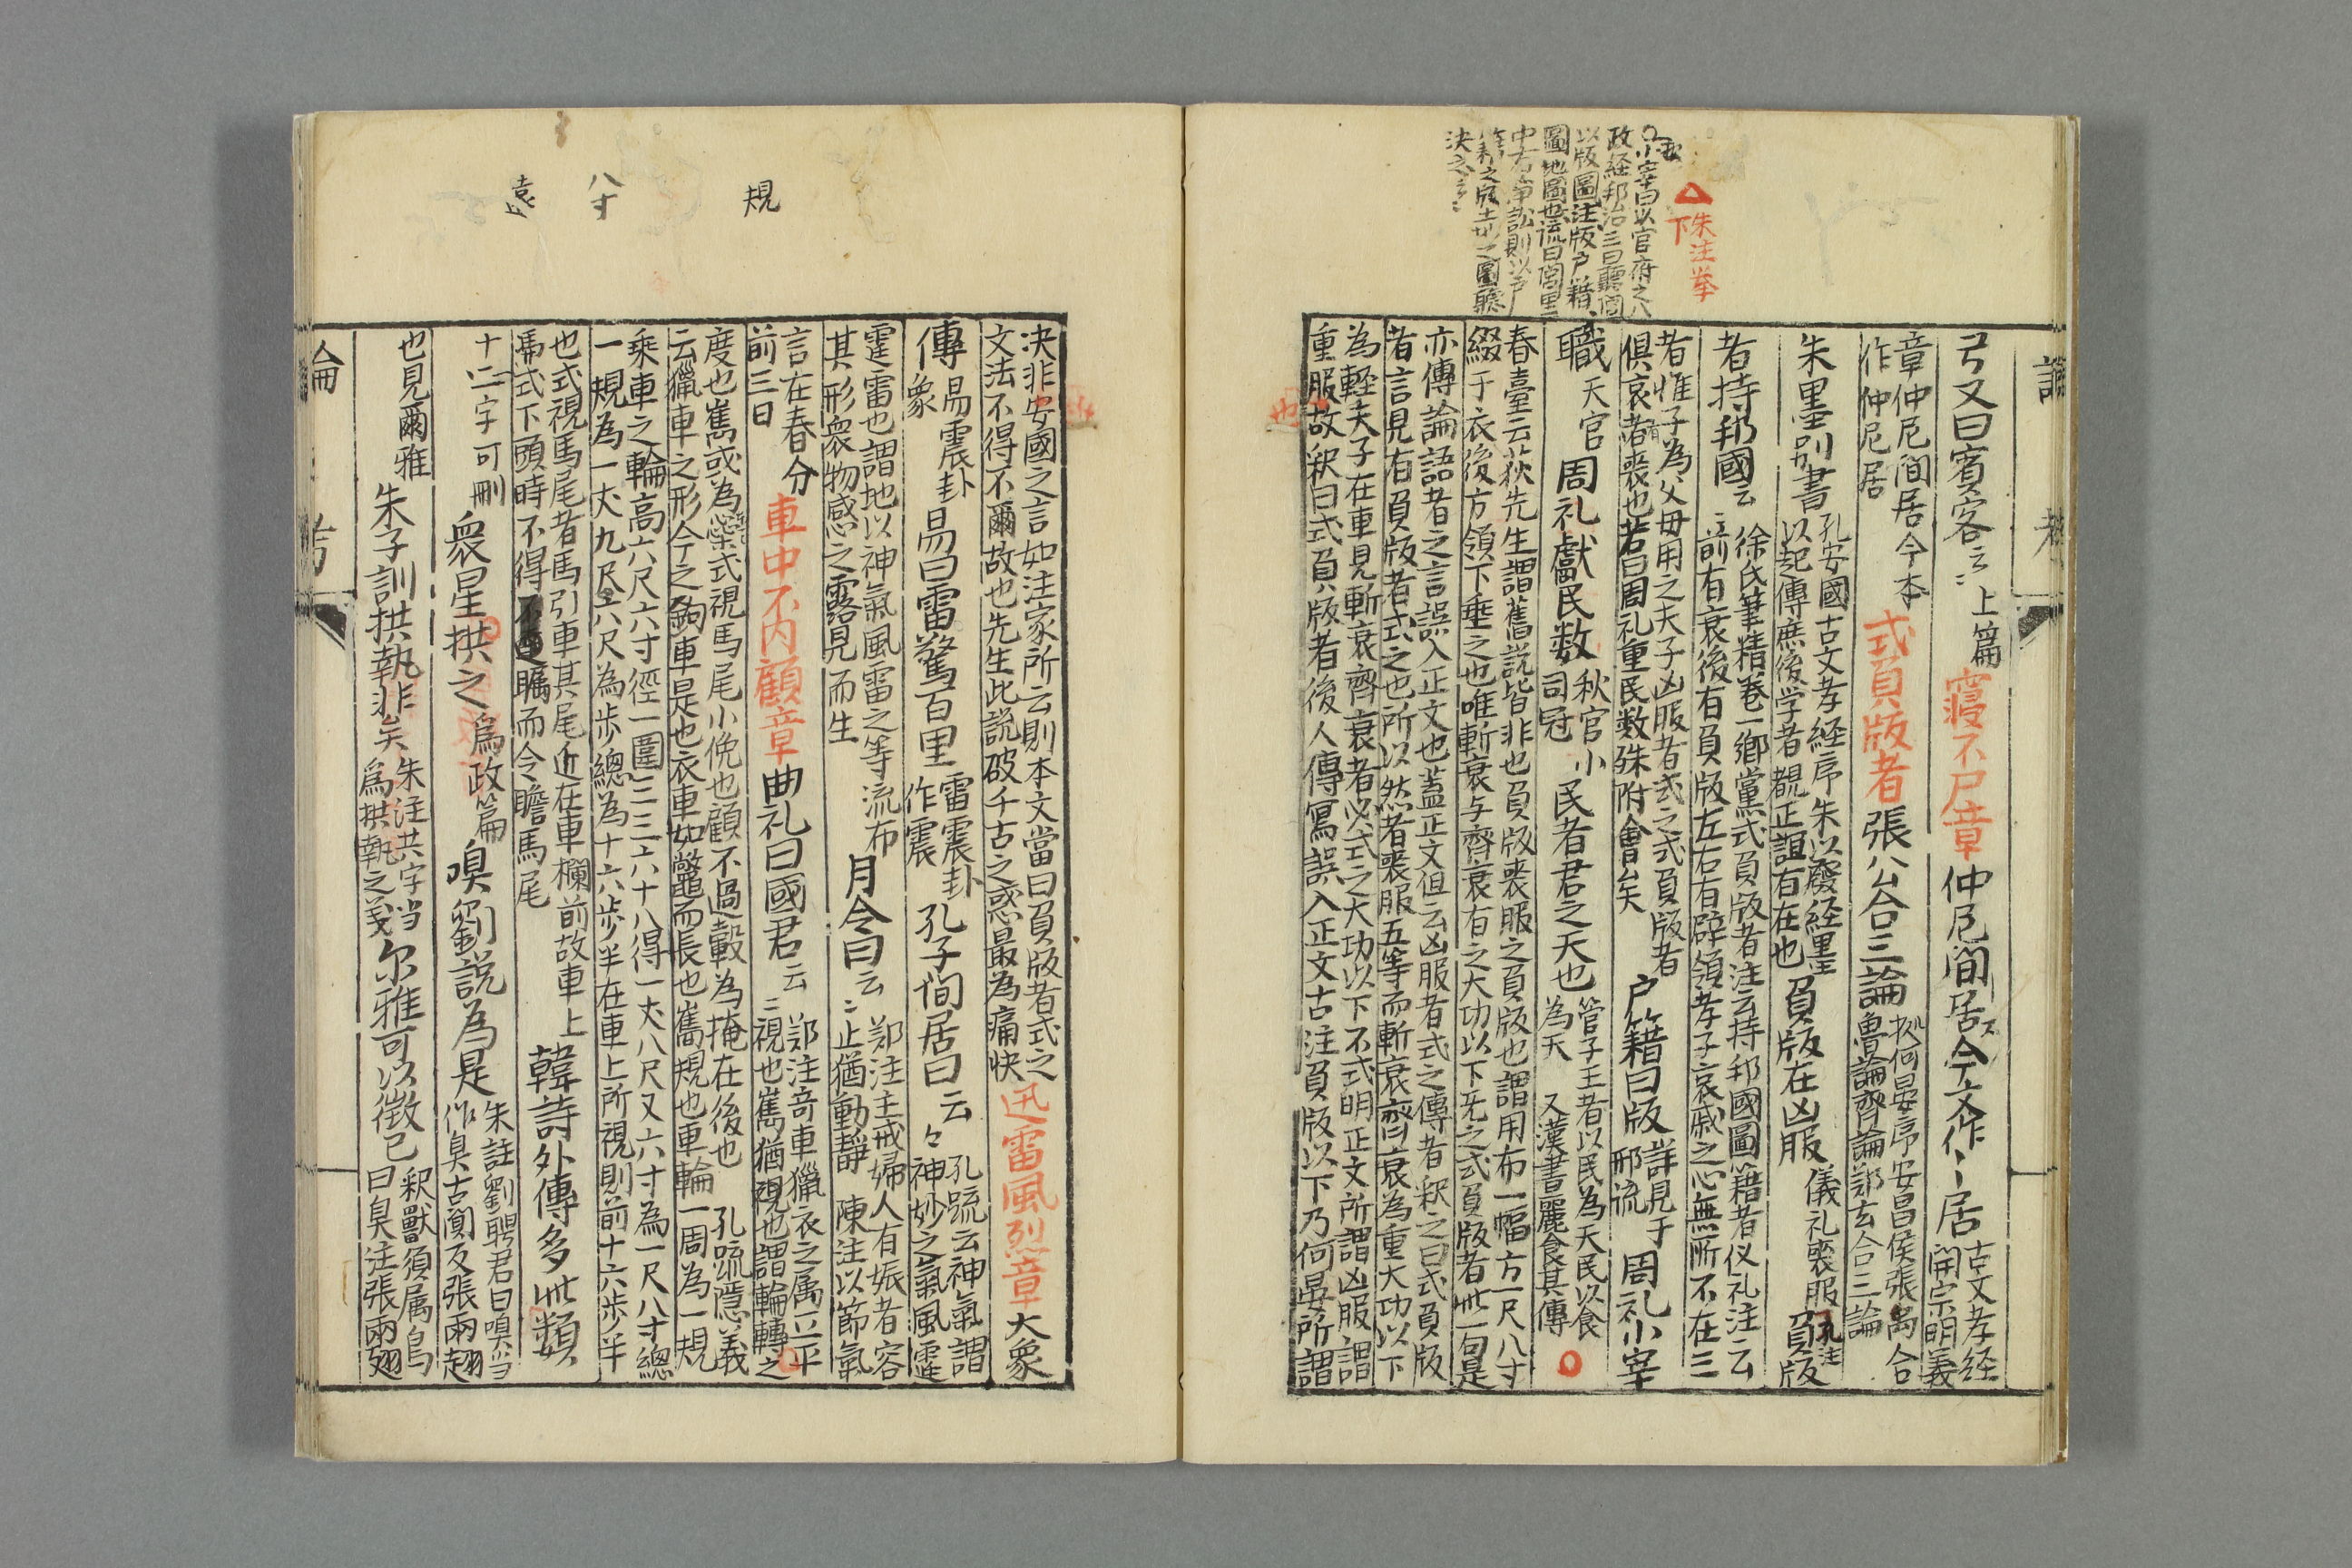 弓又曰賓客云〻上篇 寢不尸章 仲尼閒居今文作〻居 古文孝経開宗明義
章仲尼閒居今本作仲尼居 式負版者 張公合三論 何晏序安昌侯張禹合魯論齊論鄭玄合三論
朱墨別書 孔安國古文孝経序朱以發経墨以起傳庶後学者覩正誼有在也 負版在凶服 儀礼喪服 負版 孔注
者持邦國云〻 徐氏筆精巻一鄉黨式負版者注云持邦國圖籍者仪礼注云前有衰後有負版左右有辟領孝子哀戚之心無所不在三
者惟子為父母用之夫子凶服者式之式負版者俱哀有喪也若曰周礼重民数殊附會矣 户籍曰版 詳見于邢疏 周礼小宰
職 天官 周礼獻民数 秋官小司冠 民者君之天也 管子王者以民為天民以食為天 又漢書麗食其傳
春臺云荻先生謂舊説皆非也負版喪服之負版也謂用布一幅方一尺八寸
綴于衣後方領下垂之也唯斬衰与齊衰有之大功以下无之式負版者此一句是
亦傳論語者之言誤入正文也蓋正文但云凶服者式之傳者釈之曰式負版
者言見有負版者式之也所以然者喪服五等而斬衰齊衰為重大功以下
為輕夫子在車見斬衰齊衰者必式之大功以下不式明正文所謂凶服謂
重服故釈曰式負版者後人傳寫誤入正文古注負版以下乃何晏所謂
△朱注挙下
小宰曰以官府之八
政経邦治三曰聽閭
以版圖注版户籍
圖地圖也疏曰閭里
中有爭訟則以户
籍之版土地之圖聽
決之云〻
決非安國之言如注家所云則本文當曰負版者式之
文法不得不爾故也先生此説破千古之惑最為痛快 迅雷風烈章 大象
傳 易震卦象 易曰雷驚百里 雷震卦作震 孔子閒居曰云〻 孔疏云神氣謂神妙之氣風霆
霆雷也謂地以神氣風雷之等流布其形衆物感之露見而生 月令曰云〻 鄭注主戒婦人有娠者容止猶動靜 陳注以節氣
言在春分前三日 車中不内顧章 曲礼曰國君云〻 鄭注奇車獵衣之属立平視也嶲猶規也謂輪轉之
度也嶲或為繠式視馬尾小俛也顧不過轂為掩在後也 孔疏隠義
云獵車之形今之鉤車是也衣車如鼈而長也嶲規也車輪一周為一規
乘車之輪高六尺六寸徑一圍三三六十八得一丈八尺又六寸為一尺八寸總
一規為一丈九尺六尺為歩總為十六歩半在車上所視則前十六歩半
也式視馬尾者馬引車其尾近在車欄前故車上
馮式下頭時不得瞩而令瞻馬尾 韓詩外傳多此類
十二字可刪 衆星拱之 爲政篇 嗅劉説為是 朱註劉聘君曰嗅当作臭古闃反張兩翅
也見爾雅 朱子訓拱執非矣 朱注共字当爲拱執之義 尓雅可以徵已 釈獸須属鳥曰臭注張兩翅
規
八寸
遠
論